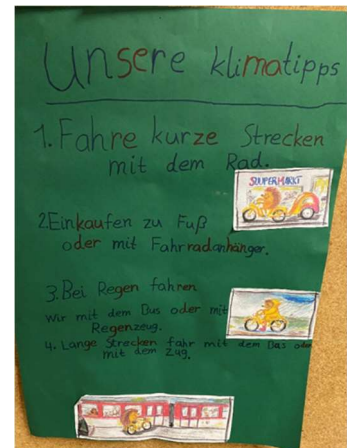 Unsere klimatipps
1. Fahre kurze Strecken
mit dem Rad.
SUUPERMARKT
2. Einkaufen zu Fuß
oder mit Fahrradanhänger.
3. Bei Regen fahren
wir mit dem Bus oder mit
Regenzeug.
4. Lange Strecken fahr mit dem Bus oder
mit dem Zug.